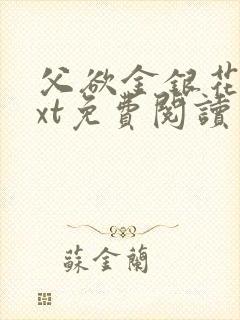 父欲金銀花
xt免費閱讀
蘇金蘭